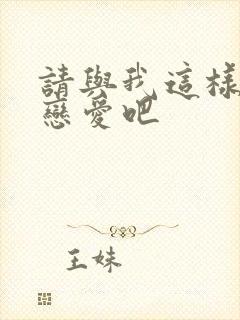 請與我這樣
戀愛吧
王妹